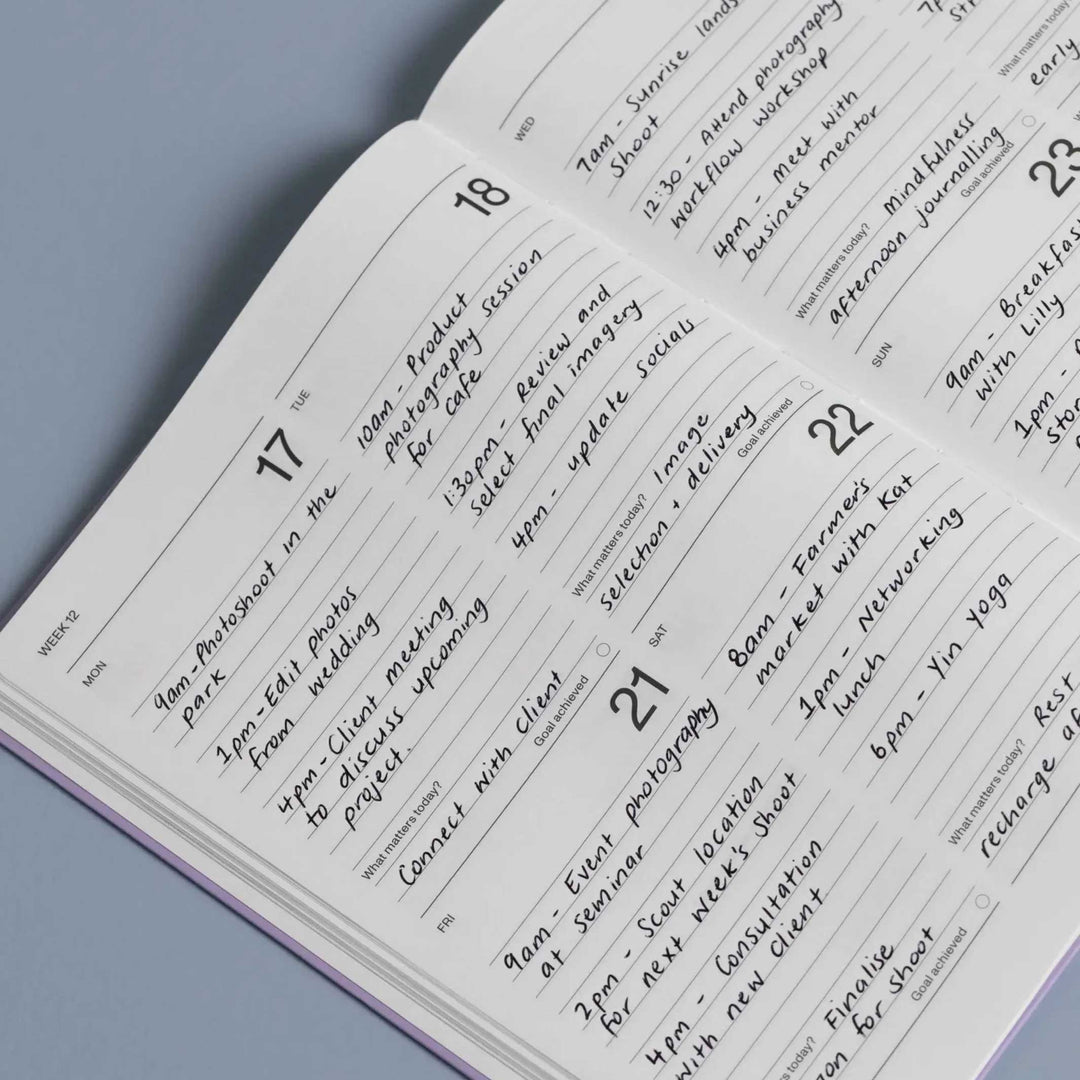 WEEK 12
MON
17
9am - Photoshoot in the
park
1pm - Edit photos
from wedding
4pm - Client meeting
to discuss upcoming
project.
What matters today?
Connect with client
Goal achieved
TUE
18
10am - Product
photography session
for cafe
1:30pm - Review and
select final imagery
4pm - update socials
What matters today? Image
selection + delivery
Goal achieved
WED
7am - Sunrise
Shoot
12:30 - Attend photography
workflow workshop
4pm - meet with
business mentor
What matters today? Mindfulness
afternoon journalling
Goal achieved
What matters today?
early
FRI
21
9am - Event photography
at seminar
2pm - Scout location
for next week's shoot
4pm - Consultation
with new client
today? Finalise
for shoot
Goal achieved
SAT
22
8am - Farmer's
market with Kat
1pm - Networking
lunch
6pm - Yin Yoga
What matters today? Rest
recharge
SUN
23
9am - Breakfast
with Lilly
1pm -